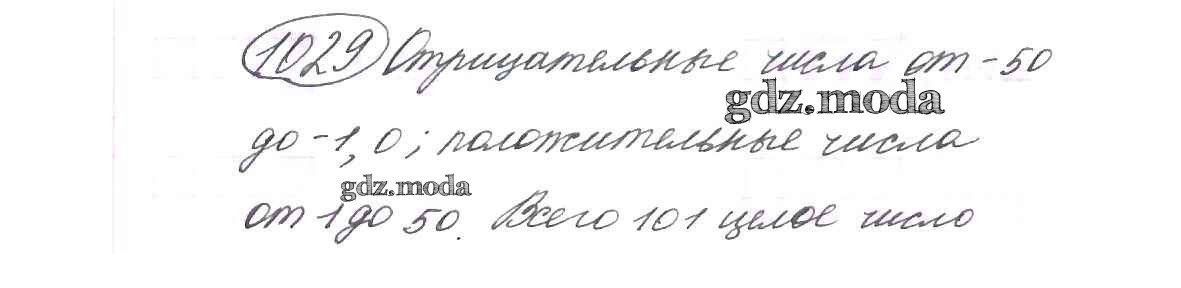 1029 Отрицательные числа от -50
gdz.moda
до -1, 0; положительные числа
gdz.moda
от 1 до 50. Всего 101 целое число